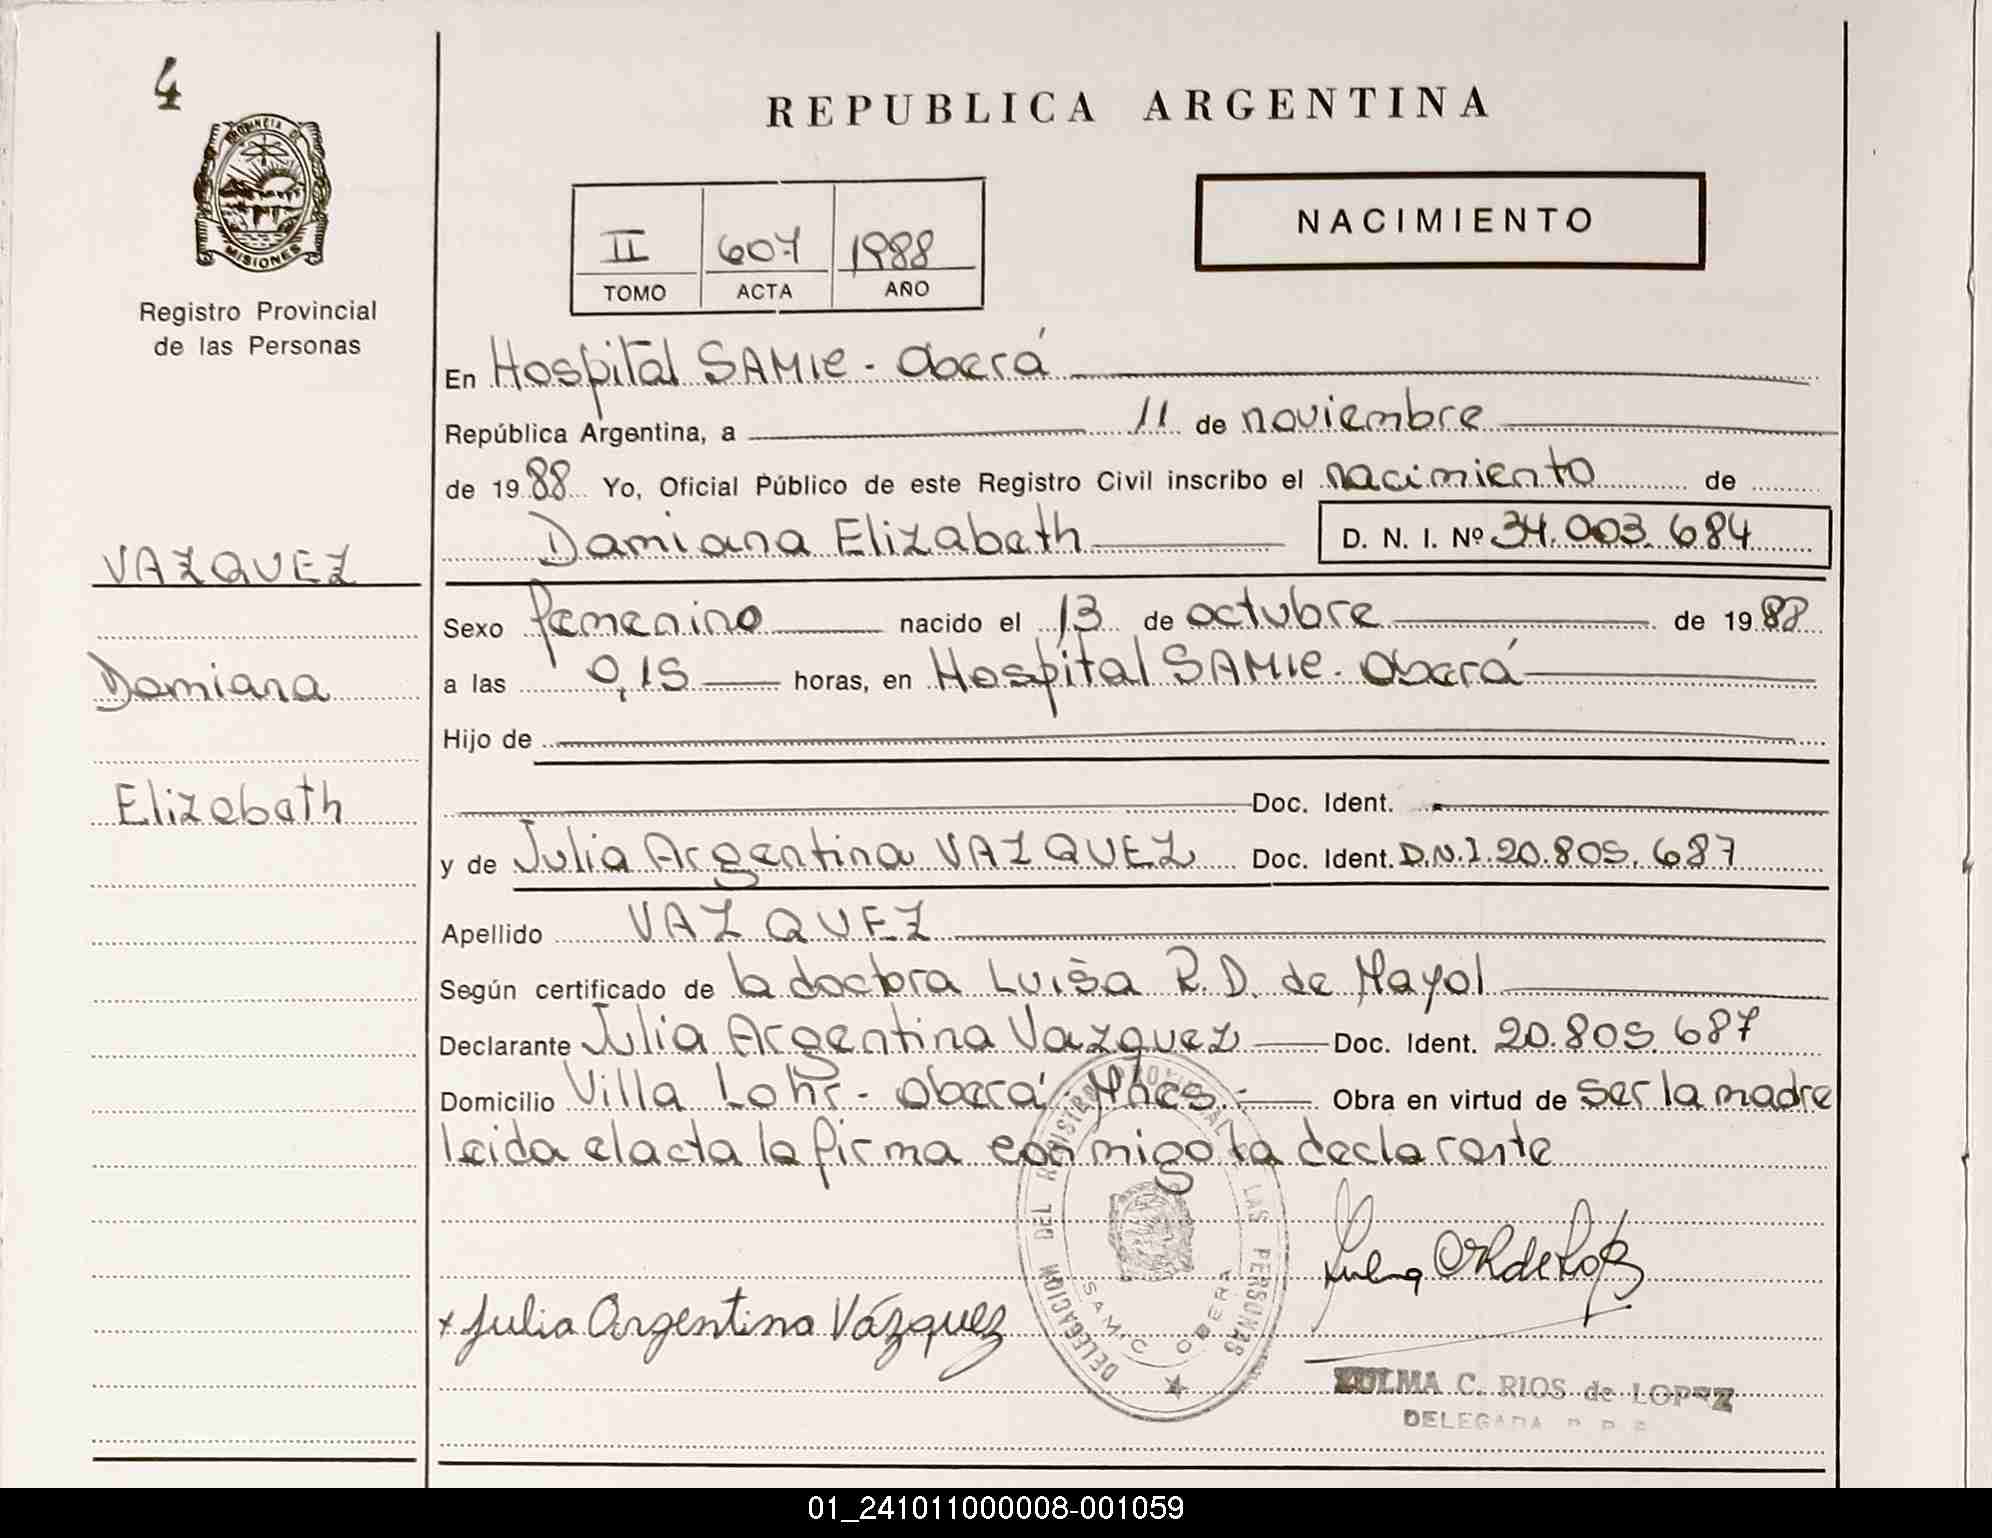 4
REPUBLICA ARGENTINA
PROVINCIA DE
MISIONES
Registro Provincial
de las Personas
II 607 1988
TOMO ACTA AÑO
NACIMIENTO
En Hospital SAMIC - Oberá
República Argentina, a 11 de noviembre
de 1988 Yo, Oficial Público de este Registro Civil inscribo el nacimiento de
Damiana Elizabeth D. N. I. Nº 34.003.684
VAZQUEZ
Damiana
Elizabeth
Sexo femenino nacido el 13 de octubre de 1988
a las 0,15 horas, en Hospital SAMIC - Oberá
Hijo de
Doc. Ident.
y de Julia Argentina VAZQUEZ Doc. Ident. D.N.I. 20.805.687
Apellido VAZQUEZ
Según certificado de la doctora Luisa R. D. de Mayol
Declarante Julia Argentina Vazquez Doc. Ident. 20.805.687
Domicilio Villa Lohr - Oberá Mnes.- Obra en virtud de ser la madre
leida el acta la firma conmigo la declarante
DELEGACION DEL REGISTRO PROVINCIAL DE LAS PERSONAS
SAMIC OBERA
x Julia Argentina Vázquez
ZULMA C. RIOS de LOPEZ
DELEGADA R. P. P.
01_241011000008-001059